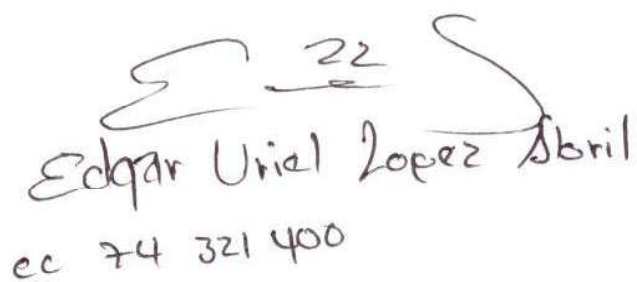 22
Edgar Uriel Lopez Abril
cc 74 321 400